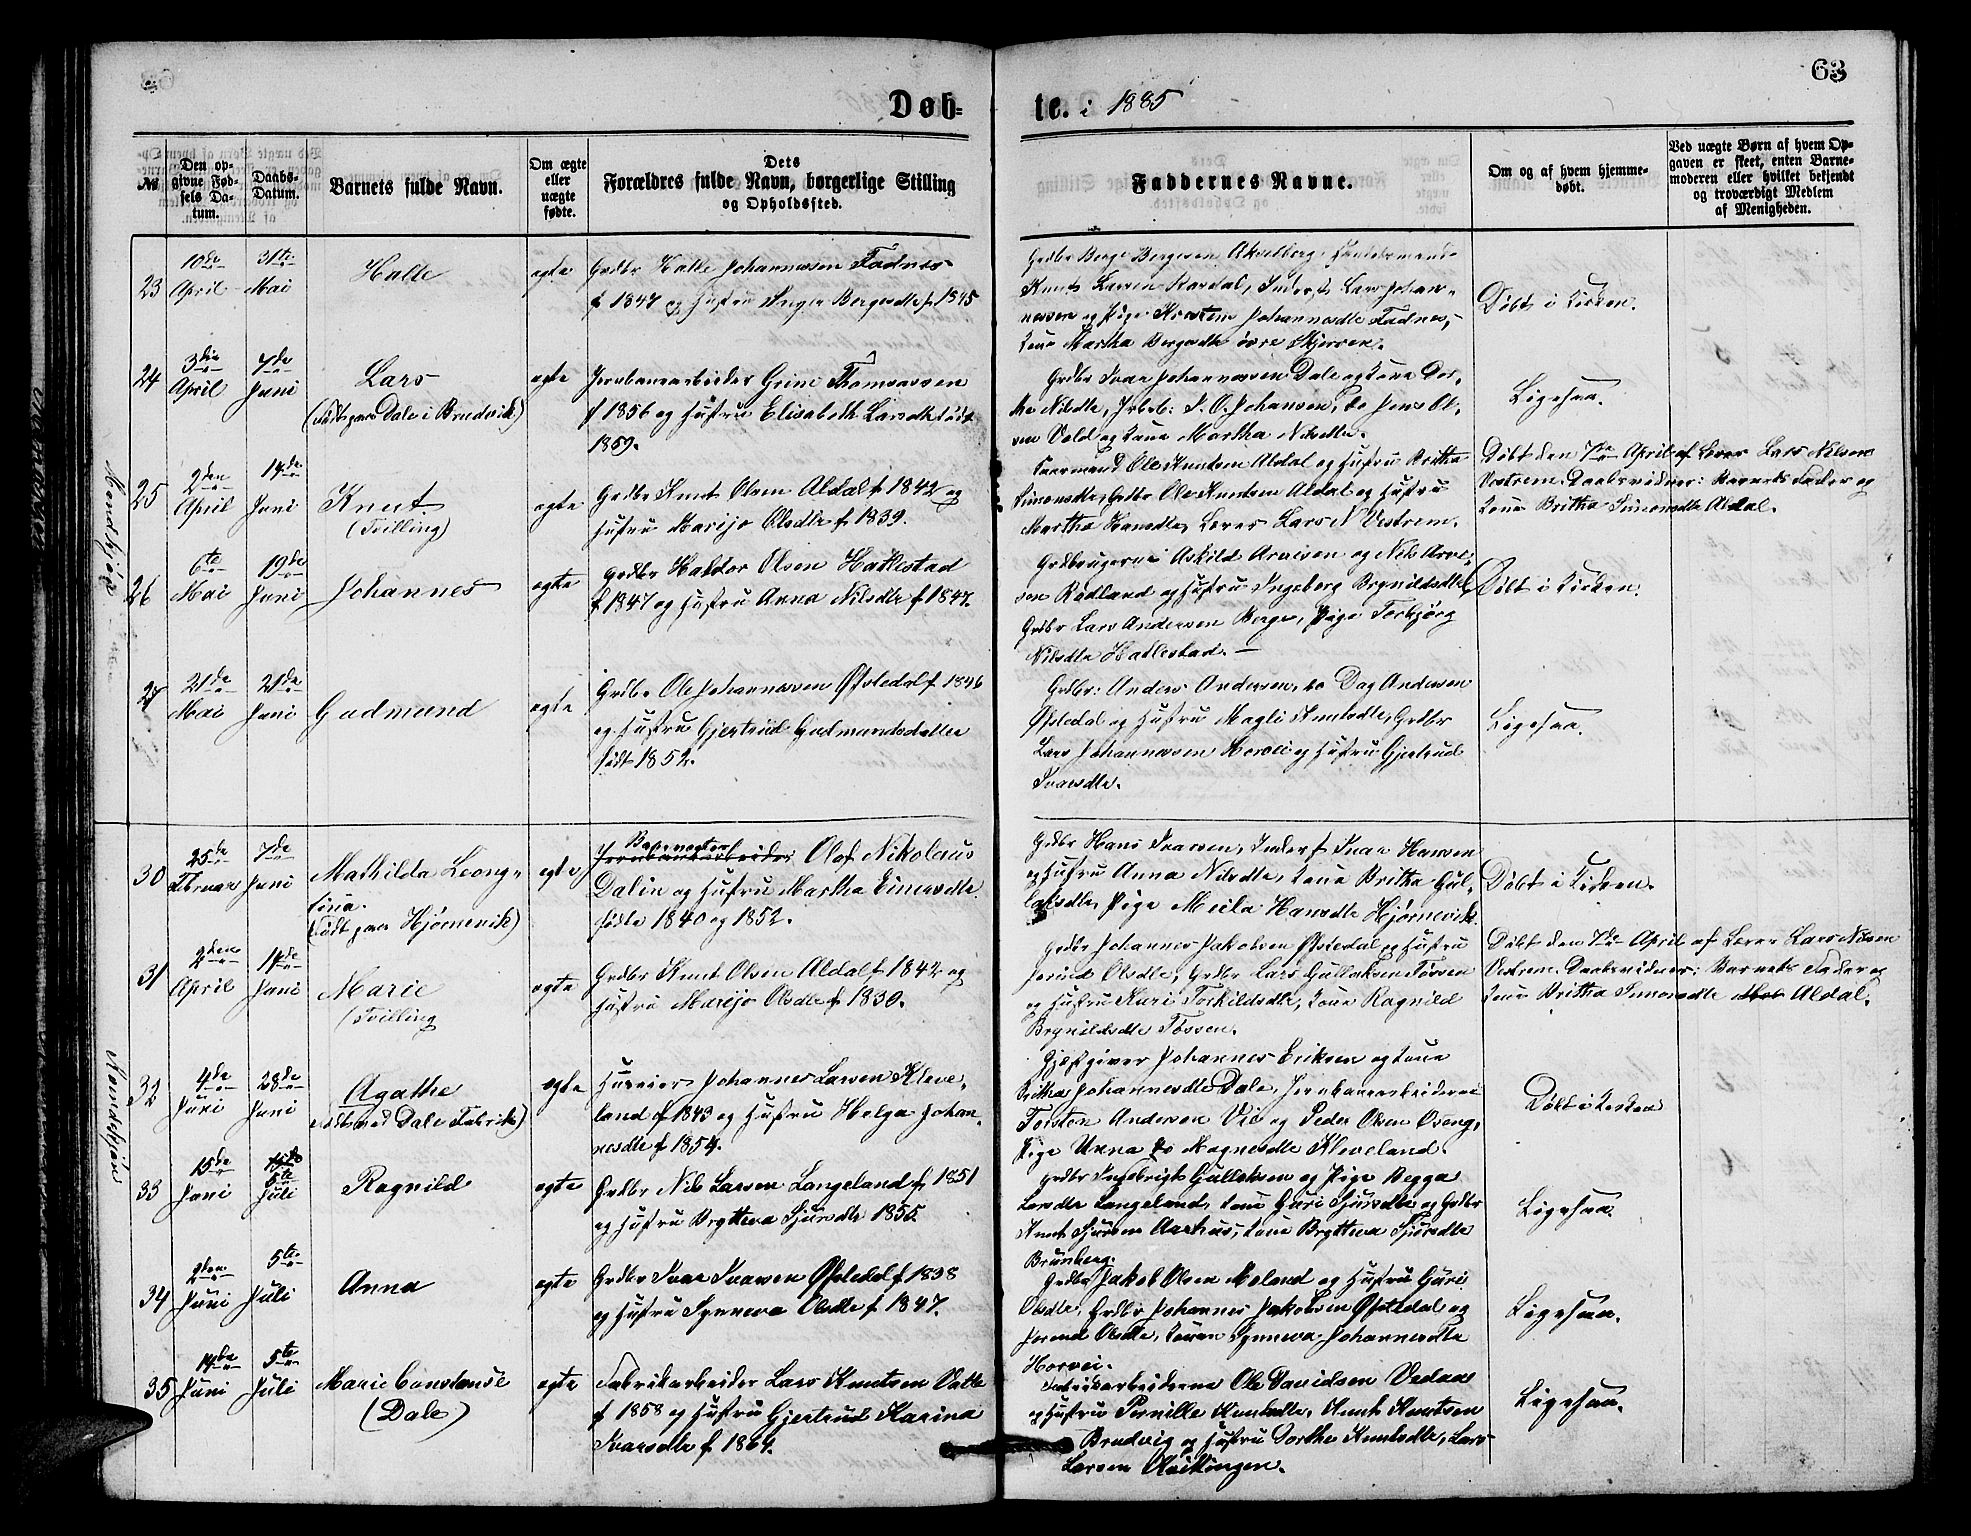 63
Døb=
te. i 1885
№
Den op-
givne Fød-
sels Da-
tum.
Daabs-
Datum.
Barnets fulde Navn.
Om ægte
eller
uægte
fødte.
Dets
Forældres fulde Navn, borgerlige Stilling
og Opholdssted.
Faddernes Navne.
Om og af hvem hjemme-
døbt.
Ved uægte Børn af hvem Op-
gaven er skeet, enten Barne-
moderen eller hvilket bekjendt
og troværdigt Medlem
af Menigheden.
Mandkjøn
23
10de
April
31te
Mai
Halle
egte
Grdbr Halle Johannessen Fadnes
f 1847 og Hustru Inger Bergesdtr f. 1845
Grdbr Berge Bergesen
Knut Larsen Rasdal, Inderst Lars Johan-
nessen og Pige Kirsten Johannesdtr Fadnes,
Kone Martha Bergesdtr øvre Skjerven.
Døbt i Kirken.
24
3die
April
7de
Juni
Lars
(født paa Dale i Brudvik)
egte
Jernbanearbeider Grim Thomassen
f 1856 og Hustru Elisabeth Larsdtr født
1859.
Grdbr Ivar Johannessen Dale og Kone Dor-
the Nilsdtr, Jrbrb: S. O. Johansen, do Jens Ol-
sen Vold og Kone Martha Nilsdtr.
Ligesaa.
25
2den
April
14de
Juni
Knut
(Tvilling)
egte
Grdbr Knut Olsen Aldal f 1842 og
Hustru Marijo Olsdtr f 1839.
Ole Knutsen Aldal og Hustru Britha
Simonsdtr, Grdbr Ole Knutsen Aldal og Hustru
Martha Hansdtr, Lærer Lars N Vestrem.
Døbt den 7de April af Lærer Lars Nilsen
Vestrem. Daabsvidner: Barnets Fader og
Kone Britha Simonsdtr Aldal.
26
6te
Mai
19de
Juni
Johannes
egte
Grdbr Haldor Olsen Hatlestad
f 1847 og Hustru Anna Nilsdtr f 1847.
Grdbrugerne Askild Arnisen og Nils Arne-
sen Rødland og Hustru Ingeborg Brynildsdtr,
Grdbr Lars Andersen Berge, Pige Torbjørg
Nilsdtr Hatlestad. —
Døbt i Kirken.
27
21de
Mai
21de
Juni
Gudmund
egte
Grdbr Ole Johannessen Øfstedal f 1846
og Hustru Gjertrud Gudmundsdatter
født 1852.
Grdbr: Anders Andersen, do Dag Andersen
Øfstedal og Hustru Magli Knutsdtr, Grdbr
Lars Johannessen Horvei og Hustru Gjertrud
Ivarsdtr.
Ligesaa.
Kvindekjøn
30
25de
Februar
7de
Juni
Mathilda Leong-
tina.
(født paa Hjørnevik)
egte
Jernbanearbeider Olof Nikolaus
Dalin og Hustru Martha Einersdtr
fødte 1840 og 1852.
Grdbr Hans Ivarsen, Inderst Ivar Hansen
og Hustru Anna Nilsdtr, Kone Britha Gul-
laksdtr, Pige Meila Hansdtr Hjørnevik
Døbt i Kirken.
31
2den
April
14de
Juni
Marie
(Tvilling
egte
Grdbr Knut Olsen Aldal f 1842 og
Hustru Marijo Olsdtr f 1839.
Grdbr Johannes Jakobsen Øfstedal og Hustru
Jorund Olsdtr, Grdbr Lars Gullaksen Tøssen
og Hustru Kari Torkildsdtr, Kone Ragnild
Brynildsdtr Tøssen.
Døbt den 7de April af Lærer Lars Nilsen
Vestrem. Daabsvidner: Barnets Fader og
Kone Britha Simonsdtr Aldal.
32
4de
Juni
28de
Juni
Agathe
(født ved Dale Fabrik)
egte
Husmand Johannes Larsen Kleve-
land f 1843 og Hustru Helga Johan-
nesdtr f 1854.
Gjæstgiver Johannes Eriksen og Kone
Britha Johannesdtr Dale, Jernbanearbeiderne
Torsten Andersen Vie og Peder Olsen Oseng,
Pige Unna Magnesdtr Kleveland.
Døbt i Kirken
33
15de
Juni
5te
Juli
Ragnild
egte
Grdbr Nils Larsen Langeland f 1851
og Hustru Bryttева Sjursdtr 1855.
Grdbr Ingebrigt Gullaksen og Pige Begga
Larsdtr Langeland, Kone Guri Sjursdtr og Grdbr
Knut Sjursen Aarhus, Kone Brytteva Sjursdtr
Brunborg.
Ligesaa.
34
2den
Juni
5te
Juli
Anna
egte
Grdbr Ivar Ivarsen Øfstedal f 1838
og Hustru Synneva Olsdtr f 1847.
Grdbr Jakob Olsen Meland og Hustru Guri
Olsdtr, Grdbr Johannes Jakobsen Øfstedal og
Jorund Olsdtr, Konen Synneva Johannesdtr
Horvei.
Ligesaa.
35
14de
Juni
5te
Juli
Marie Constanse
(Dale)
egte
Fabrikarbeider Lars Knutsen Vatle
f 1858 og Hustru Gjertrud Karina
Ivarsdtr f 1864.
Fabrikarbeiderne Ole Davidsen Vedaa
og Hustru Pernille Knutsdtr, Knut Knutsen
Brudvig og Hustru Dorthe Knutsdtr, Lars
Larsen Kvitingen.
Ligesaa.